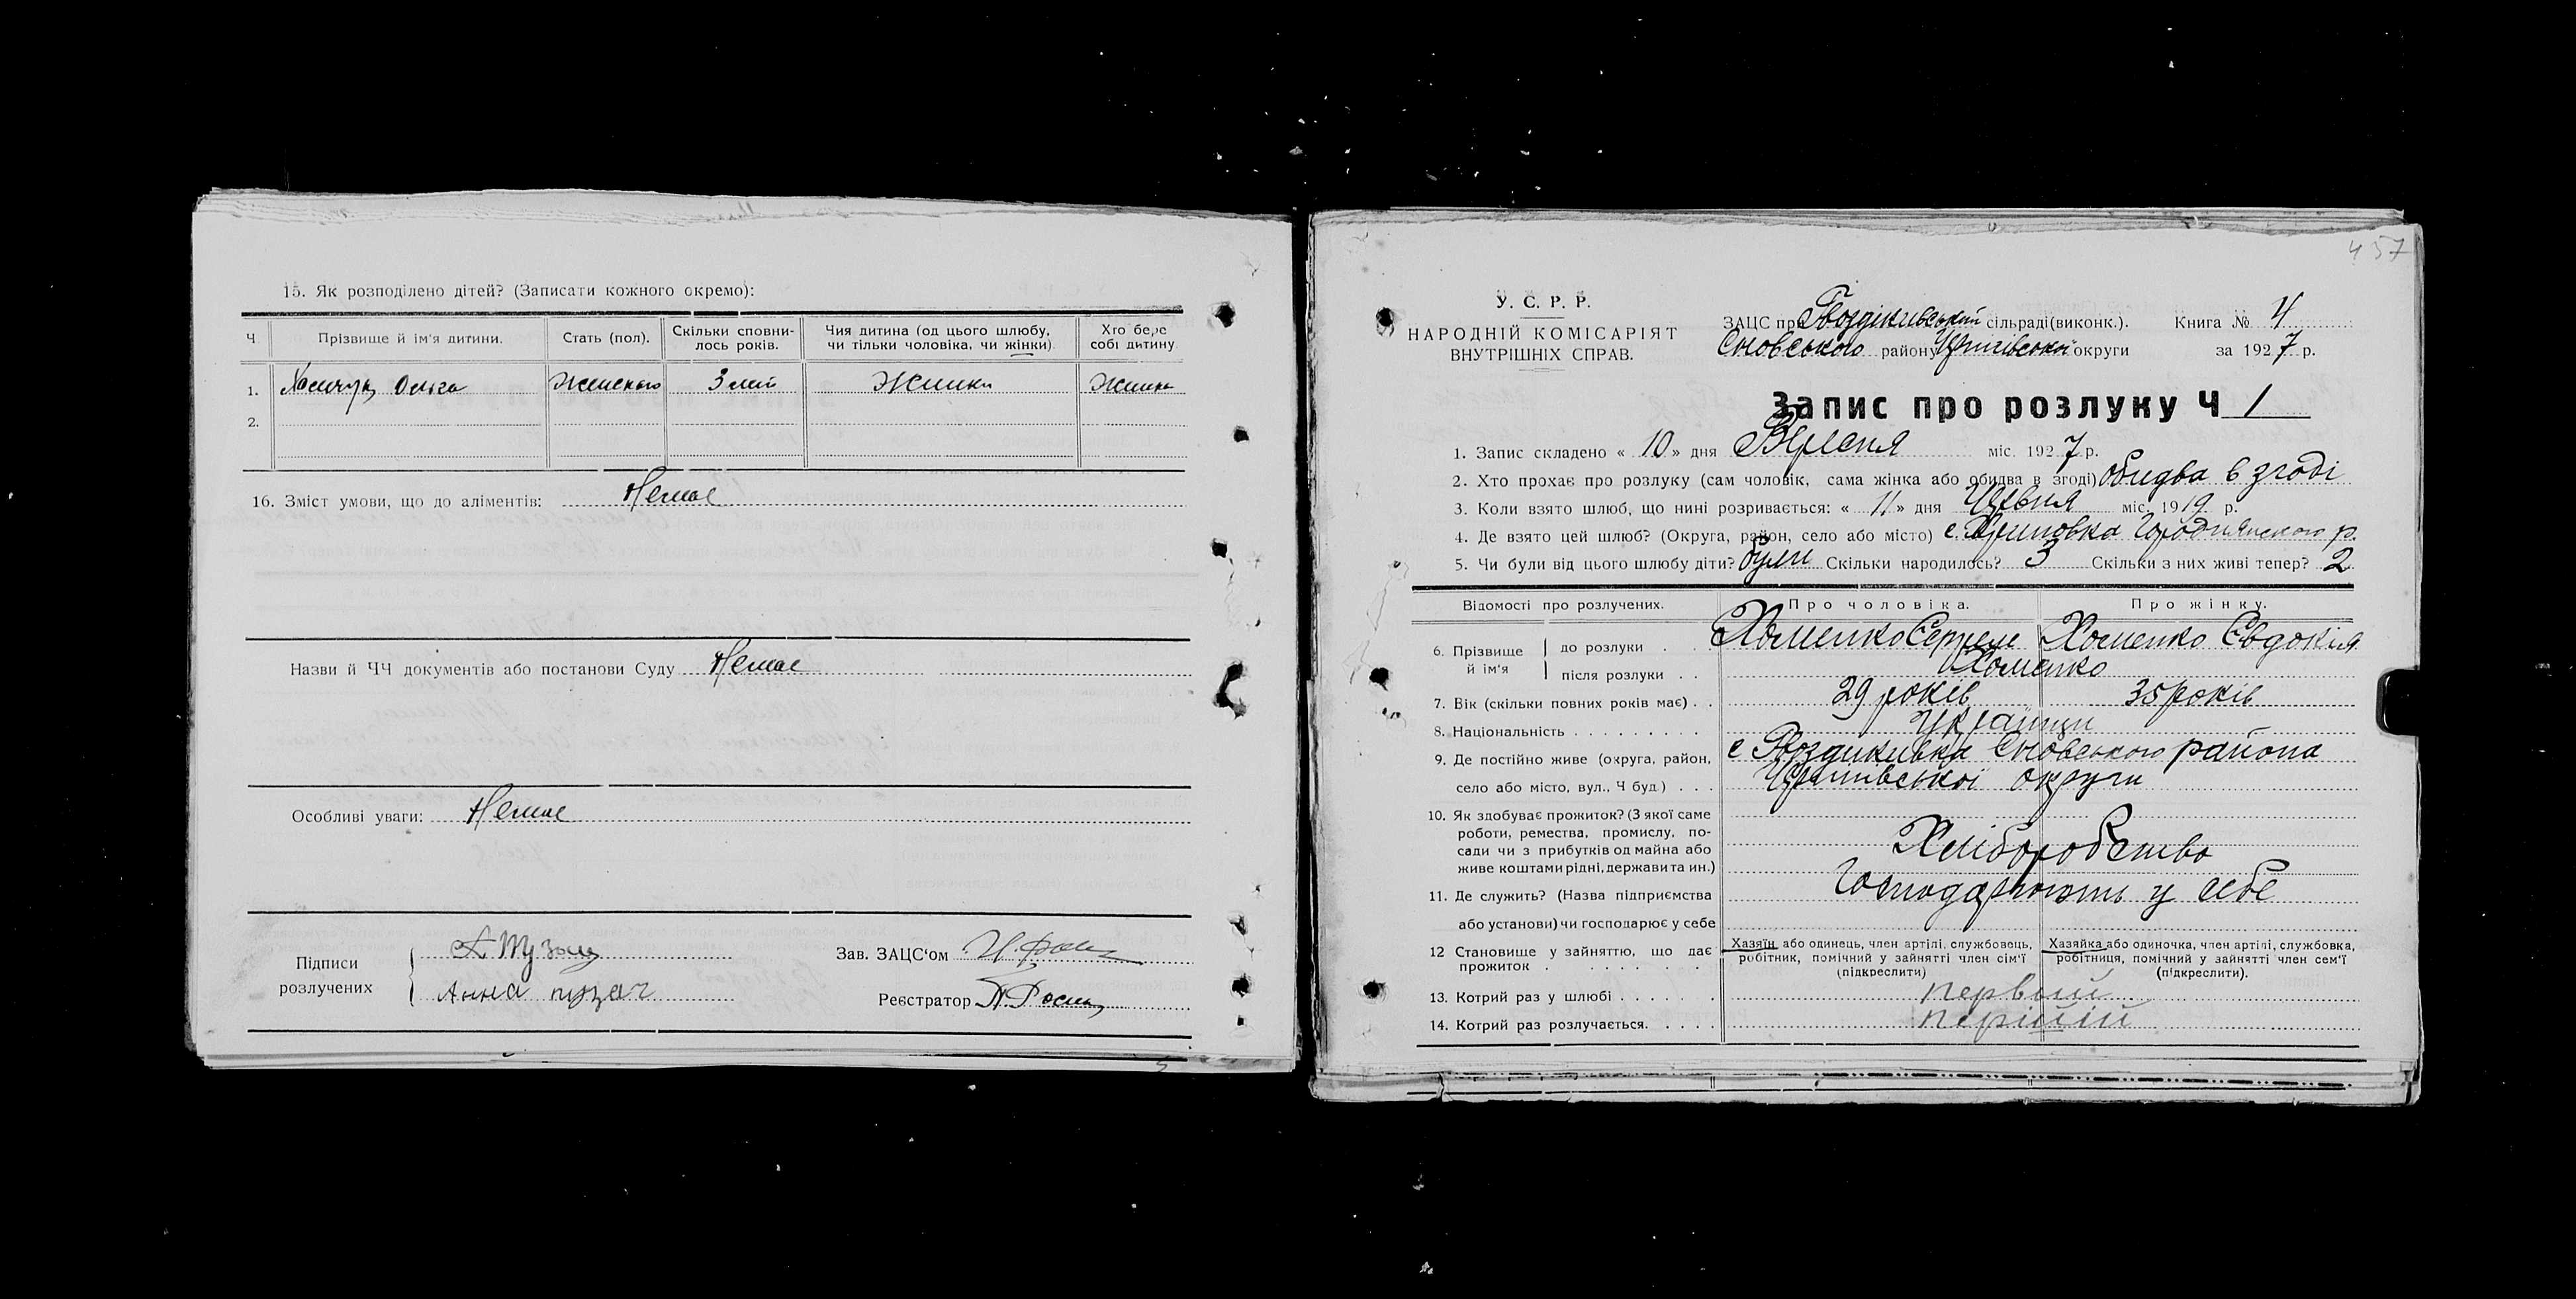 15. Як розподілено дітей? (Записати кожного окремо):
Ч Прізвище й ім'я дитини. Стать (пол). Скільки сповни-лось років. Чия дитина (од цього шлюбу, чи тільки чоловіка, чи жінки) Хто бере собі дитину
1. Ольга Женського 3 Жинки Жинка
2.
16. Зміст умови, що до аліментів: Немає
Назви й ЧЧ документів або постанови Суду Немає
Особливі уваги: Немає
Підписи розлучених
Анна пузач
Зав. ЗАЦС'ом
Реєстратор
457
У. С. Р. Р.
НАРОДНІЙ КОМІСАРІЯТ
ВНУТРІШНІХ СПРАВ.
ЗАЦС при Гвоздиківський сільраді (виконк.). Книга № 4
Сновського району Чернігівської округи за 1927 р.
Запис про розлуку Ч 1
1. Запис складено « 10 » дня Вересня міс. 1927 р.
2. Хто прохає про розлуку (сам чоловік, сама жінка або обидва в згоді) обидва в згоді
3. Коли взято шлюб, що нині розривається: « 11 » дня міс. 1919 р.
4. Де взято цей шлюб? (Округа, район, село або місто) с. Хриповка Городнянского р.
5. Чи були від цього шлюбу діти? були Скільки народилось? 3 Скільки з них живі тепер? 2
Відомості про розлучених. Про чоловіка. Про жінку.
6. Прізвище й ім'я до розлуки . . Хоменко Сергей Хоменко Євдокія
після розлуки . . Хоменко
7. Вік (скільки повних років має) . . 29 років 35 років
8. Національність . . . . . . . . . Українци
9. Де постійно живе (округа, район, с Гвоздиківка Сновського района
село або місто, вул., Ч буд.) . . . Чернігівської округи
10. Як здобуває прожиток? (З якої саме
роботи, ремества, промислу, по-
сади чи з прибутків од майна або Хліборобство
живе коштами рідні, держави та ин.)
11. Де служить? (Назва підприємства Господарюють у себе
або установи) чи господарює у себе
12 Становище у зайняттю, що дає прожиток . . . . . . . .
Хазяїн або одинець, член артілі, службовець, робітник, помічний у зайнятті член сім'ї (підкреслити)
Хазяйка або одиночка, член артілі, службовка, робітниця, помічний у зайнятті член сем'ї (підкреслити).
13. Котрий раз у шлюбі . . . . . . первый
14. Котрий раз розлучається. . . . . перший